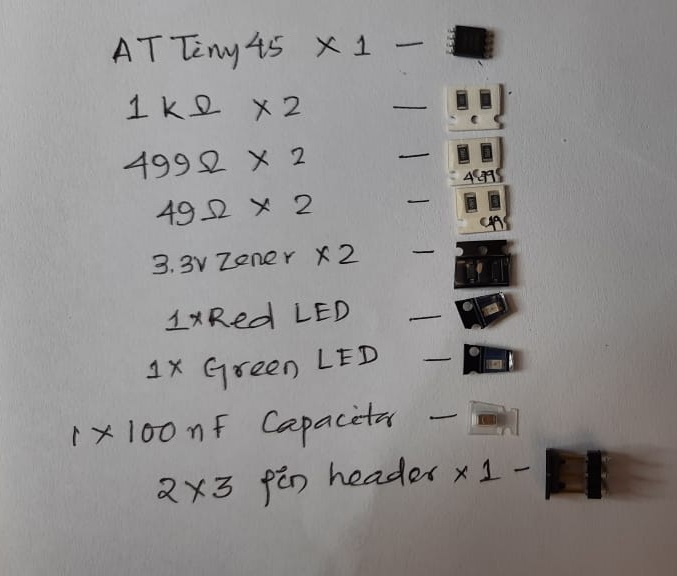 ATTiny45 x 1 —
1 kΩ x 2 —
499Ω x 2 —
499
49Ω x 2 —
49
3.3v Zener x 2 —
1x Red LED —
1x Green LED —
1 x 100 nF Capacitor —
2x3 pin header x 1 -